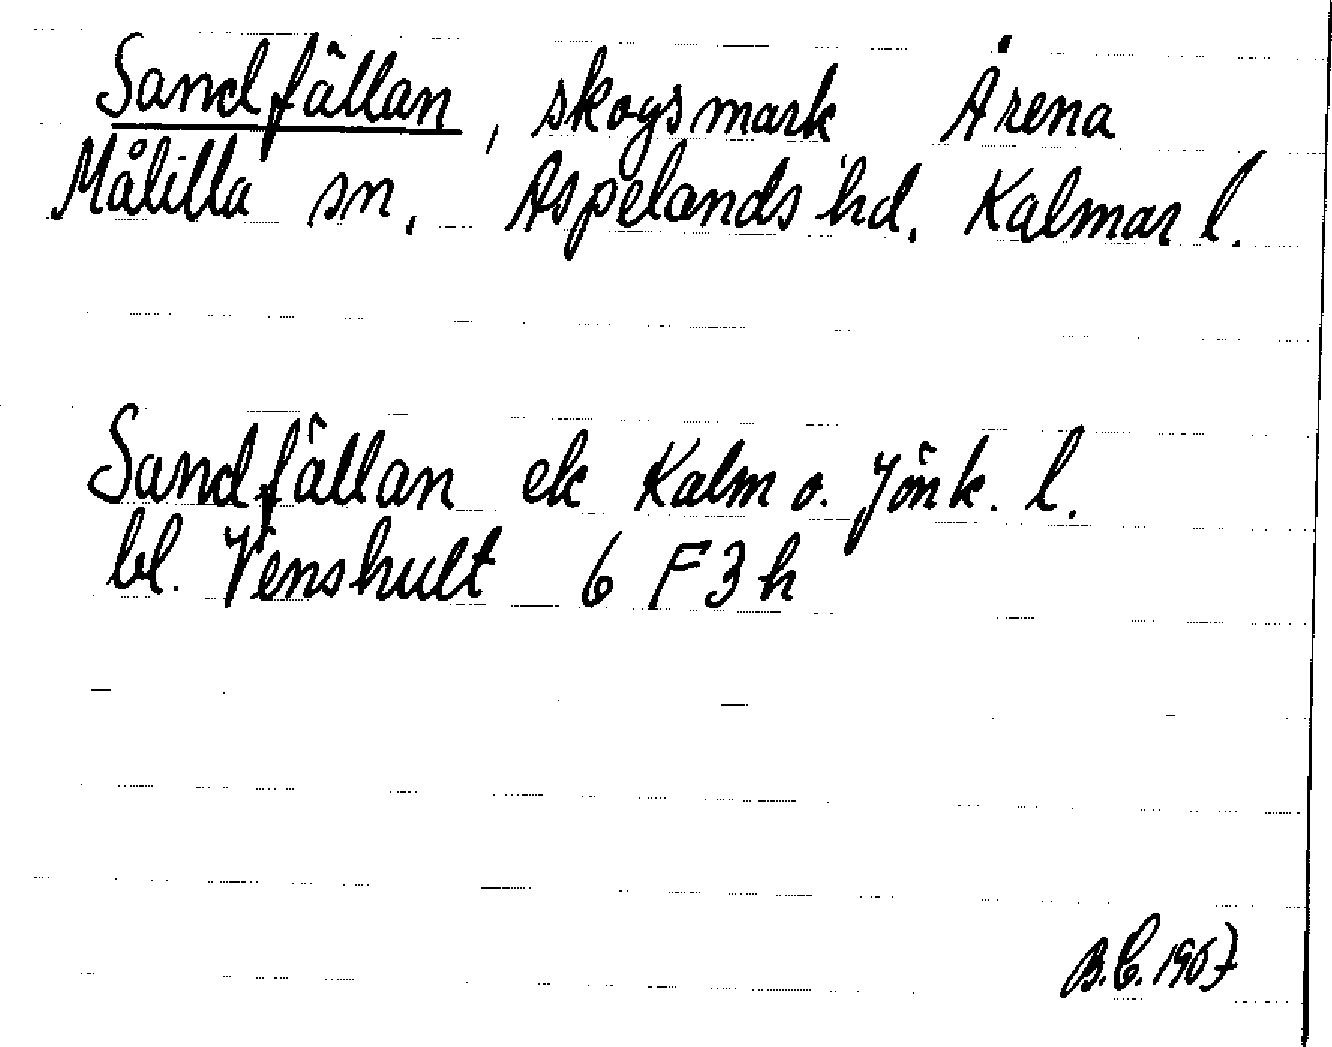 Sandfällan, skogsmark Årena
Målilla sn. Aspelands hd. Kalmar l.
Sandfällan ek Kalm o. Jönk. l.
bl. Venshult 6 F 3 h